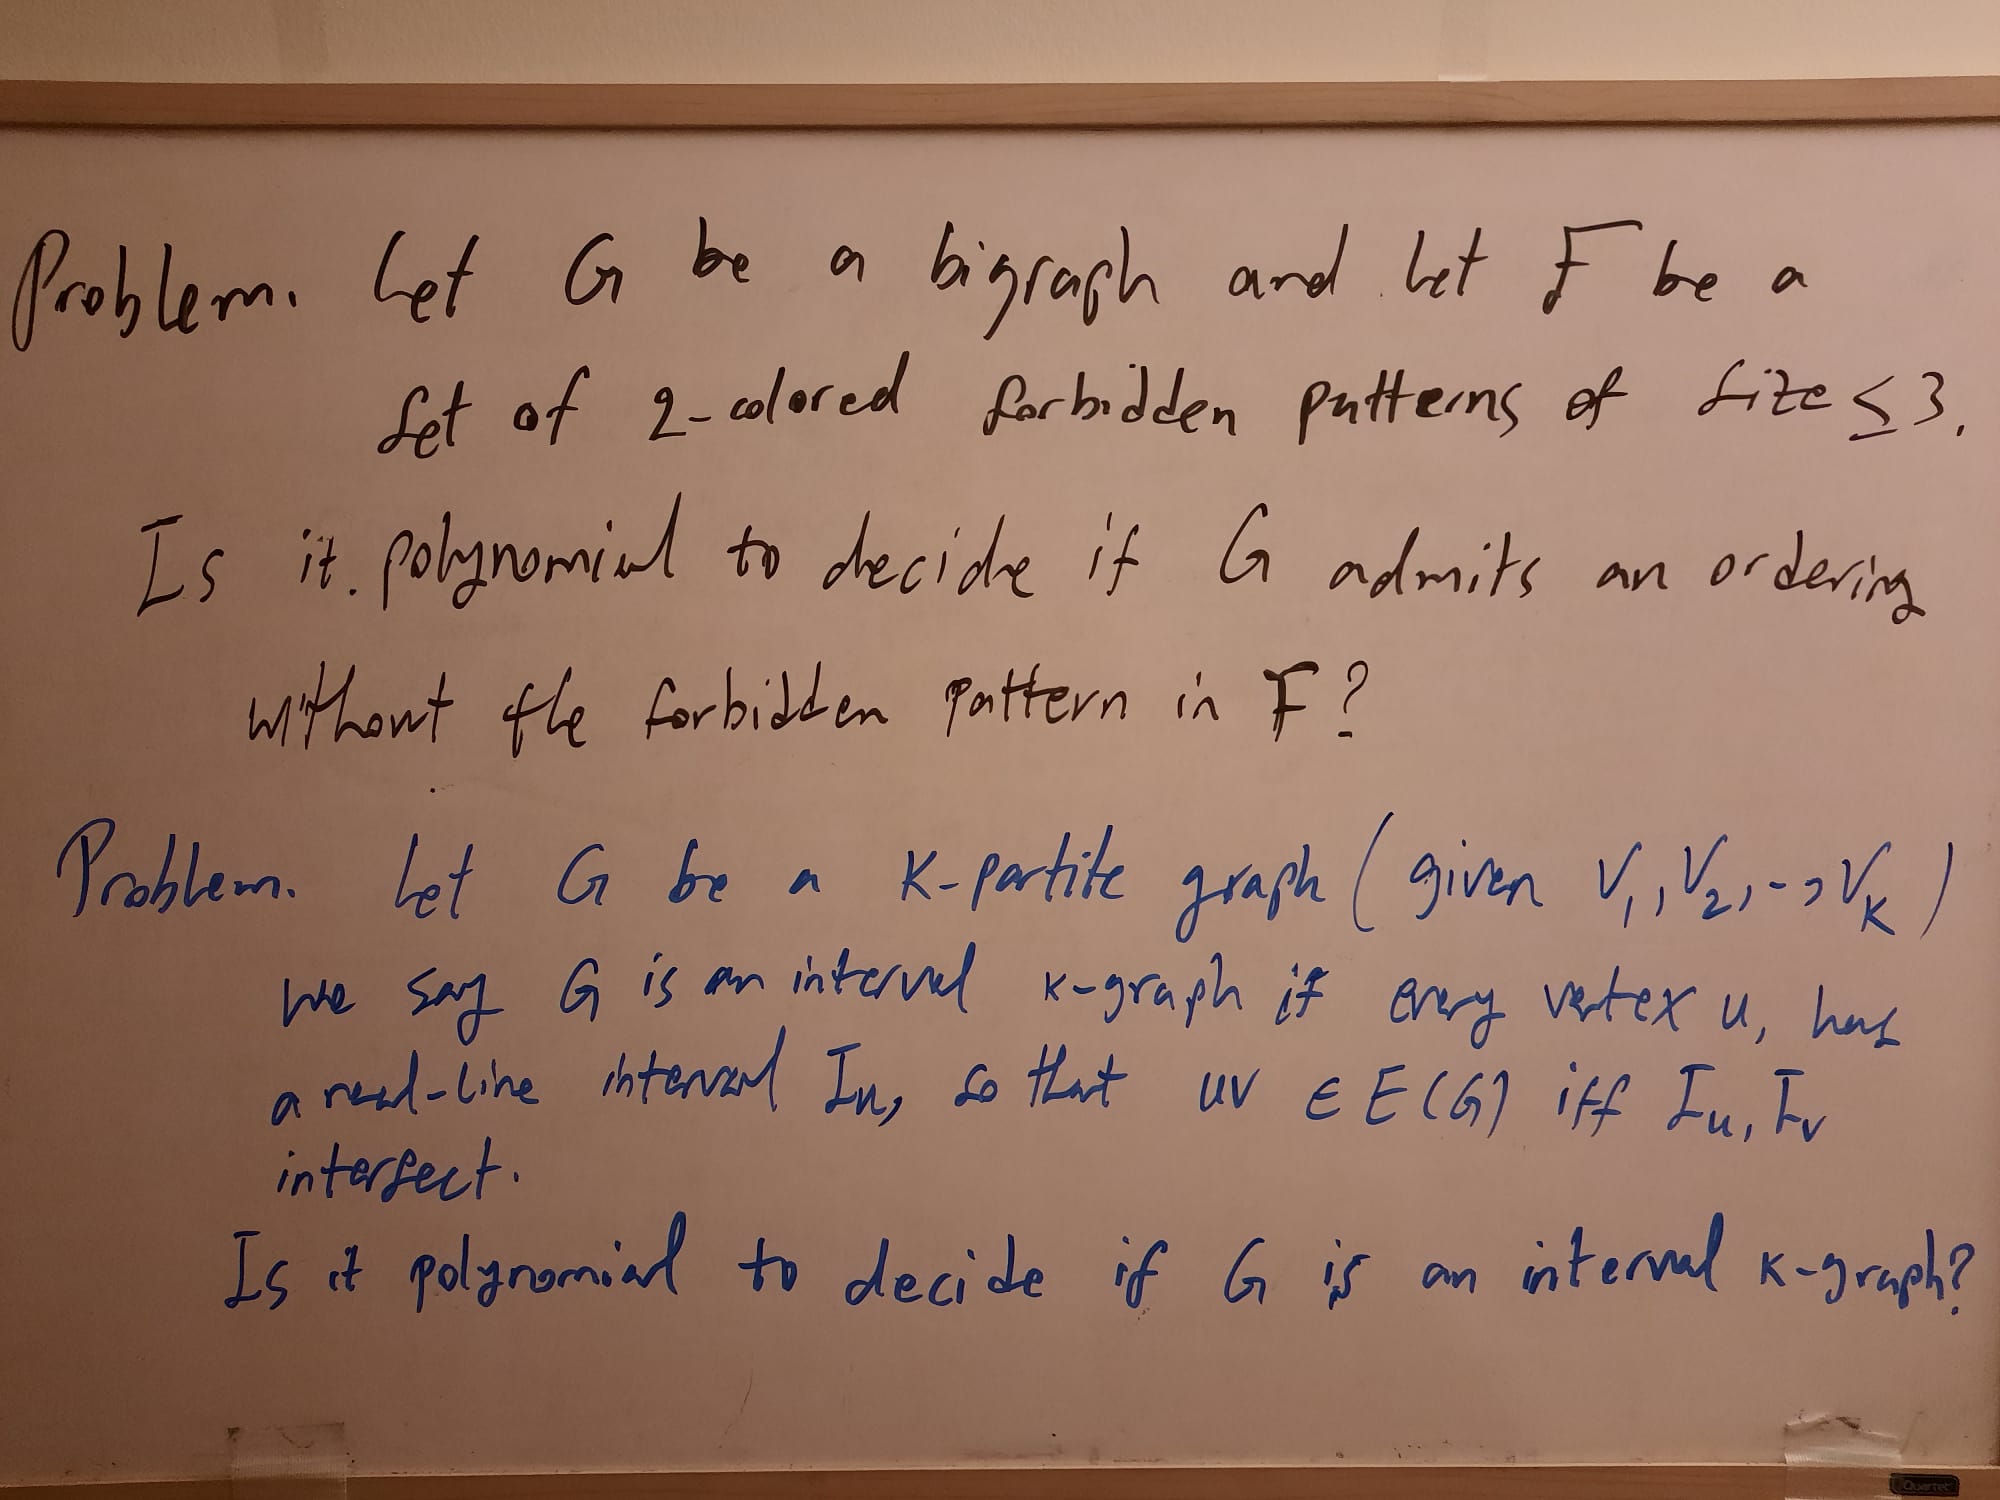 Problem. Let G be a bigraph and let F be a
set of 2-colored forbidden patterns of size ≤ 3.
Is it polynomial to decide if G admits an ordering
without the forbidden pattern in F?
Problem. Let G be a K-partite graph (given V₁, V₂, --, V_K)
We say G is an interval K-graph if every vertex u, has
a real-line interval I_u, so that uv ∈ E(G) iff I_u, I_v
intersect.
Is it polynomial to decide if G is an interval K-graph?
Quartet